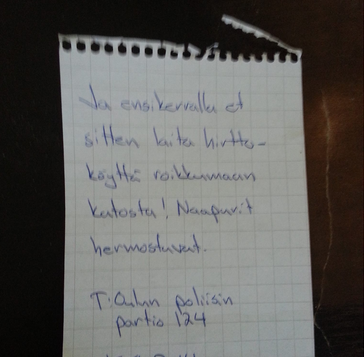 Ja ensikerralla et
sitten laita hirttо-
köyttä roikkumaan
katosta! Naapurit
hermostuvat.
T: Oulun poliisin
partio 124